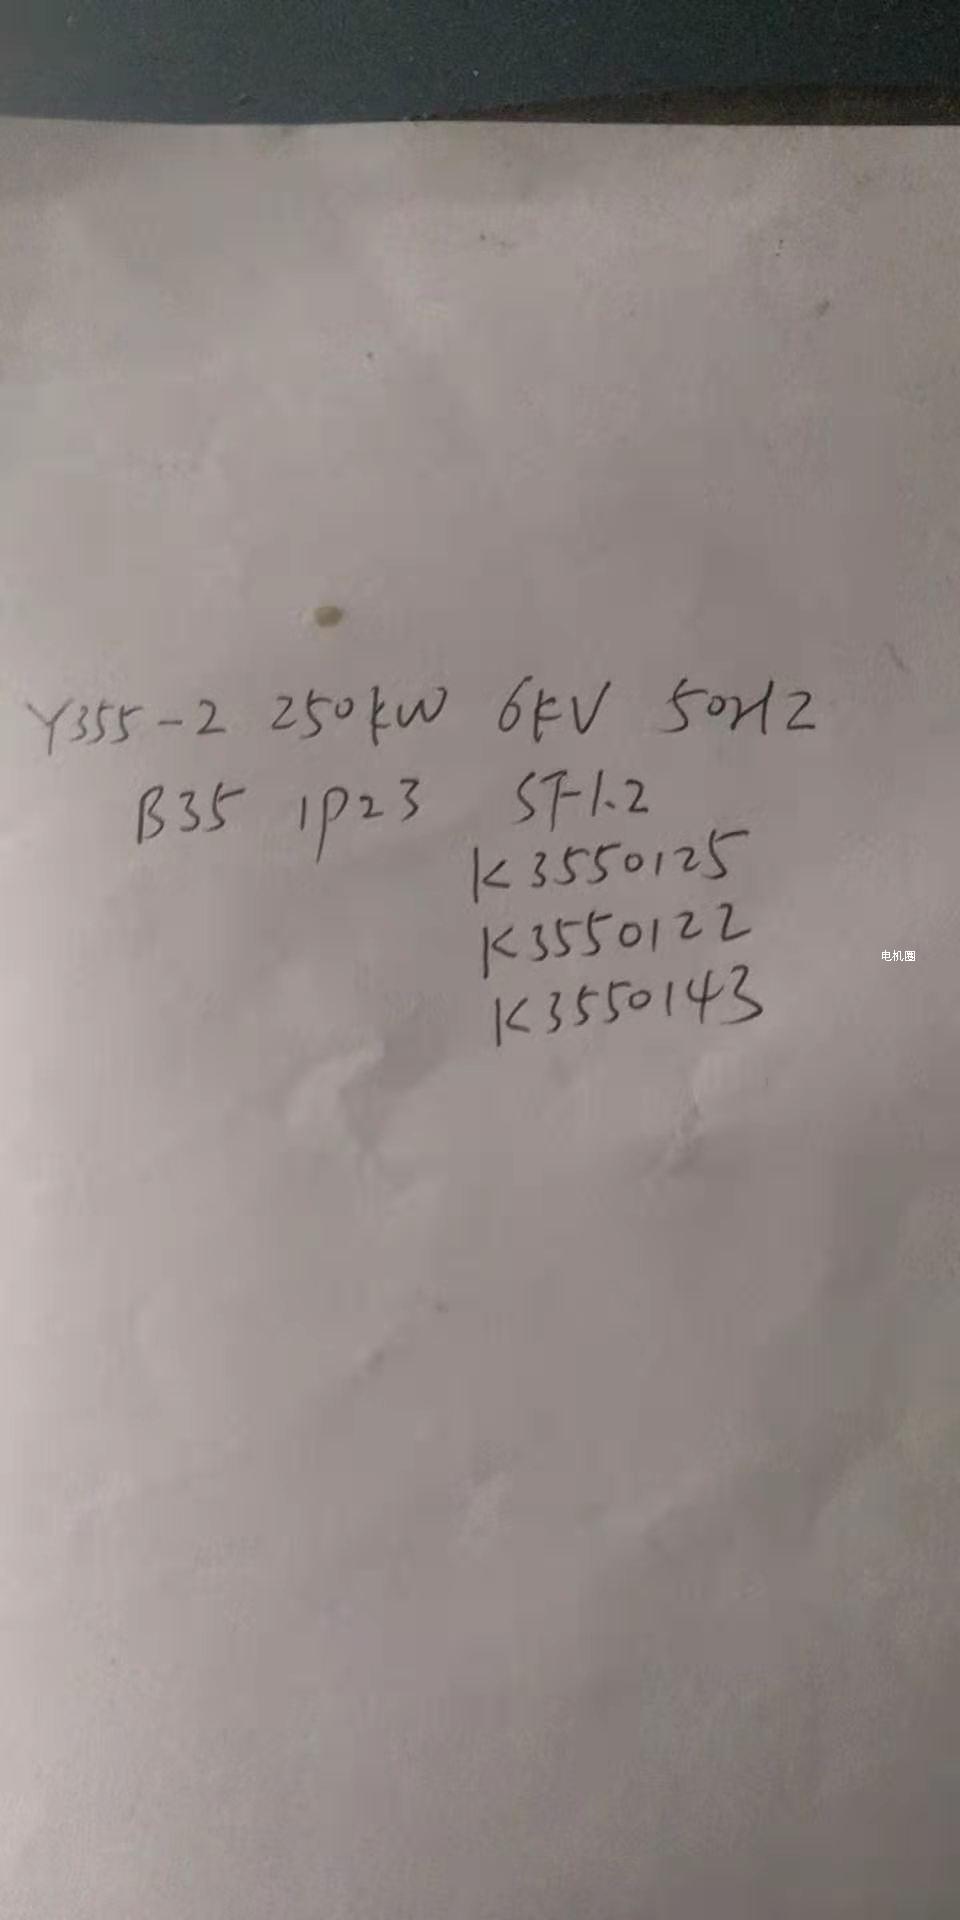 Y355-2 250kW 6kV 50HZ
B35 IP23 SF1.2
K3550125
K3550122
电机圈
K3550143